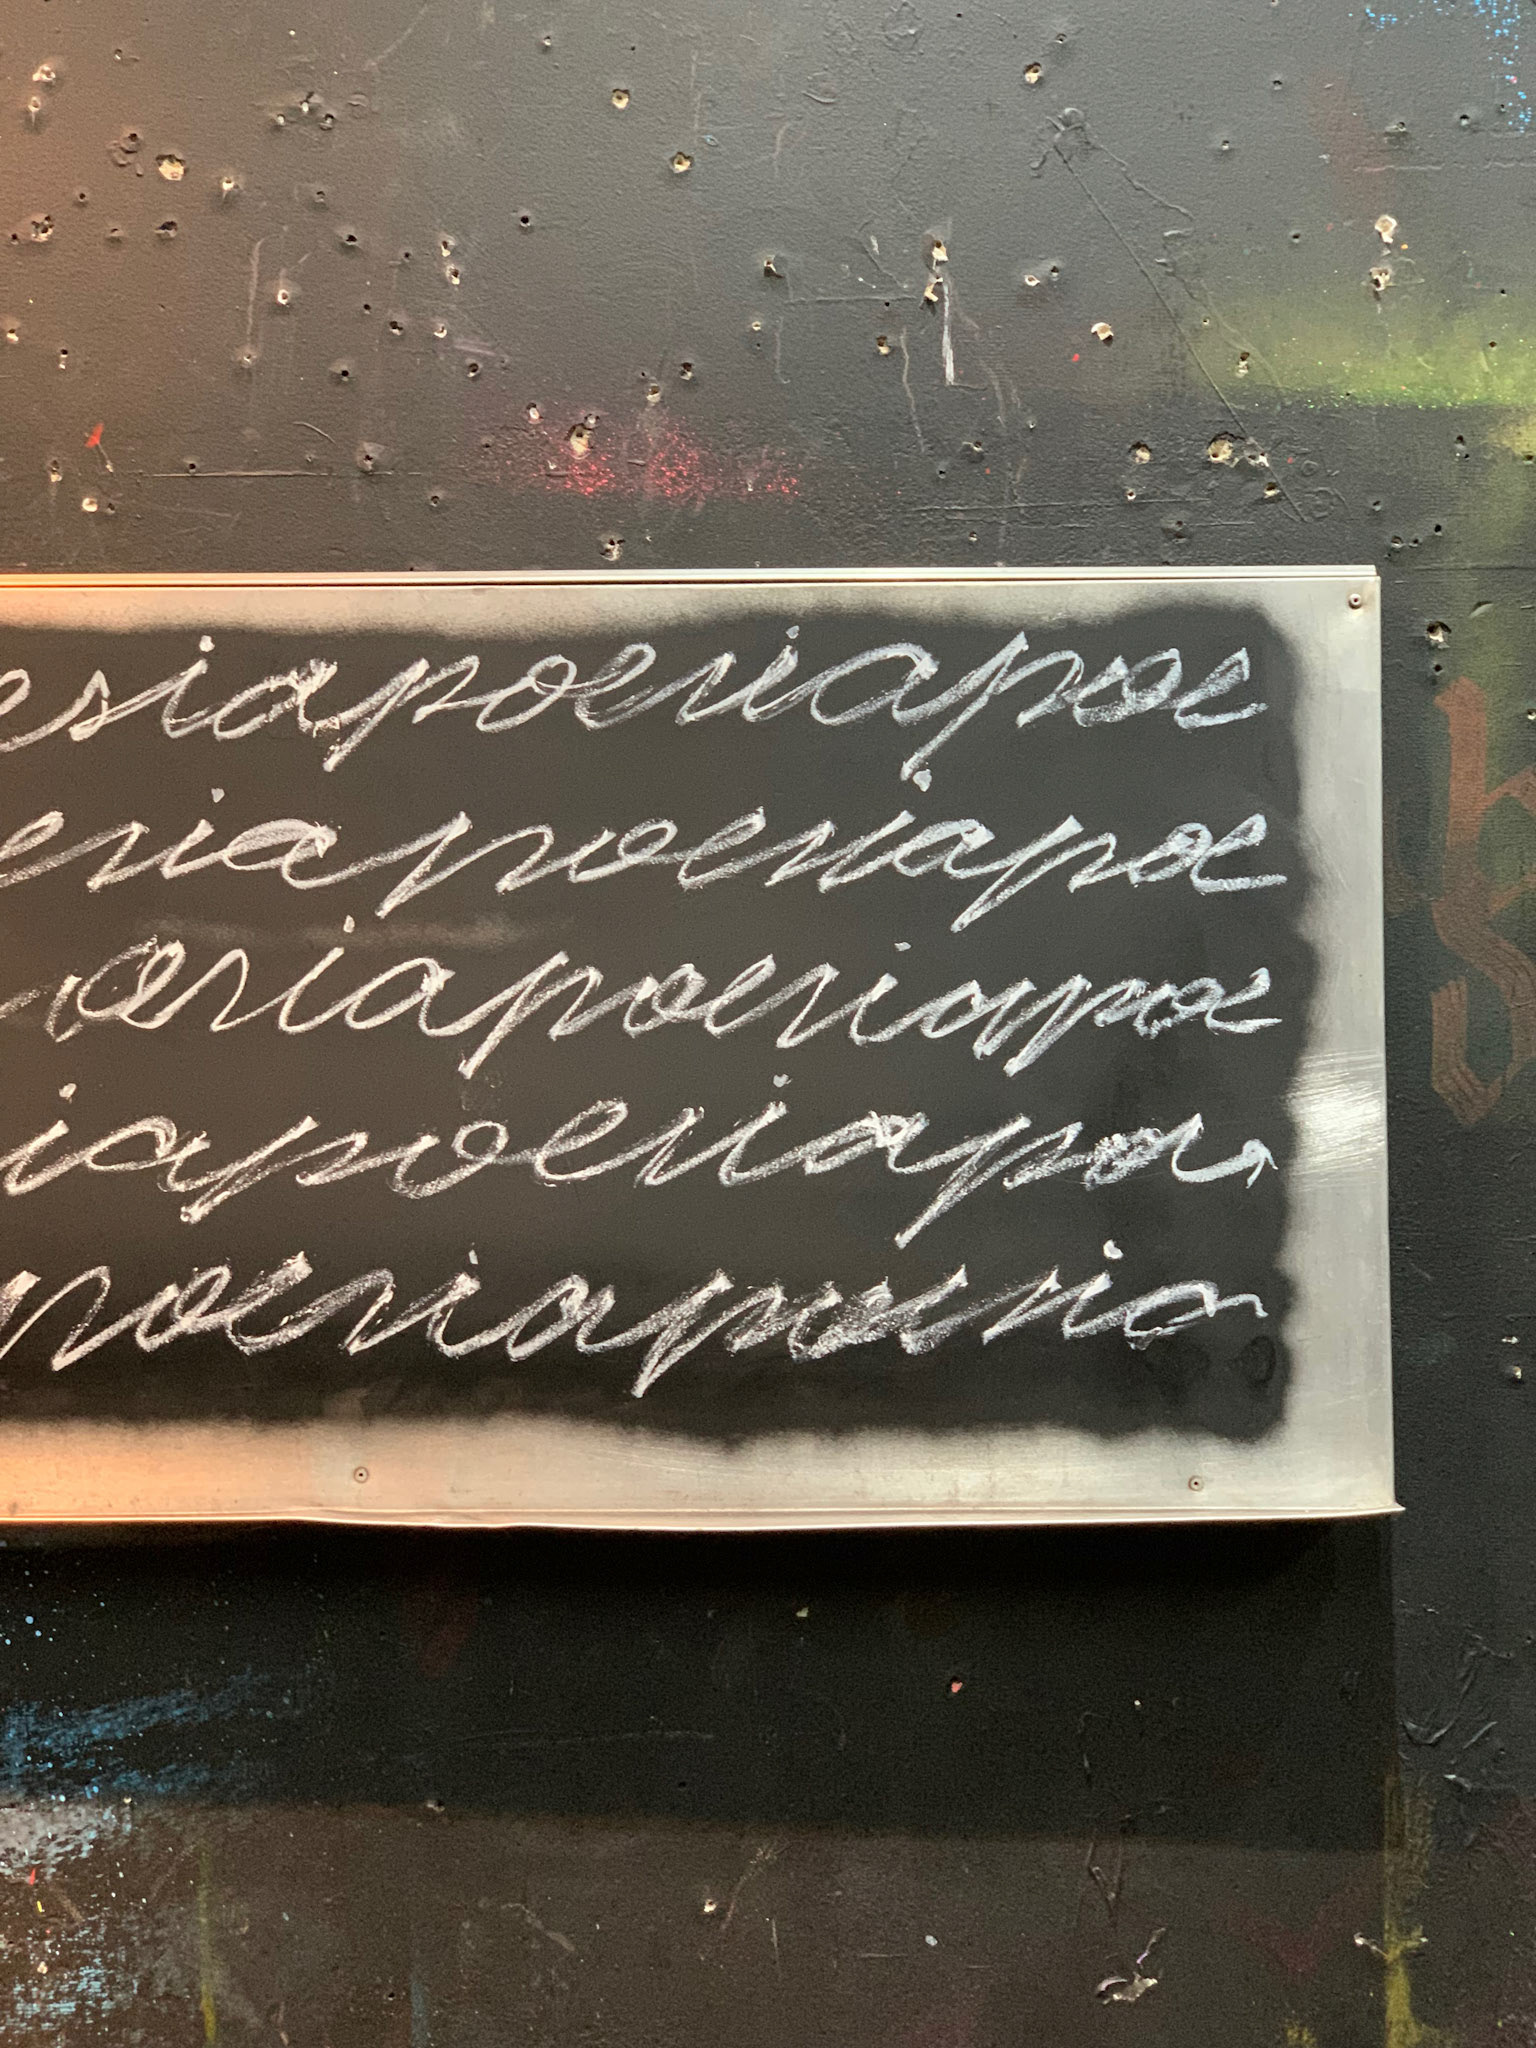 esiapoesiapoe
esiapoesiapoe
oesiapoesiapoe
iapoesiapoes
poesiapoesia